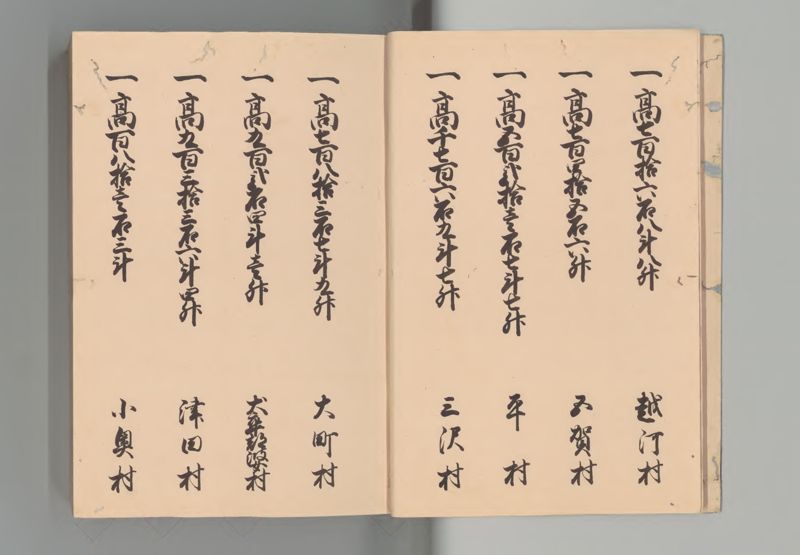 一高七百拾六石八斗八升 越河村
一高七百四拾五石六升 五賀村
一高五百弐拾壱石七斗七升 平村
一高千七百六石九斗七升 三沢村
一高七百八拾三石七斗九升 大町村
一高九百弐石四斗壱升 犬卒都婆村
一高九百三拾三石六斗四升 津田村
一高百八拾壱石三斗 小奥村